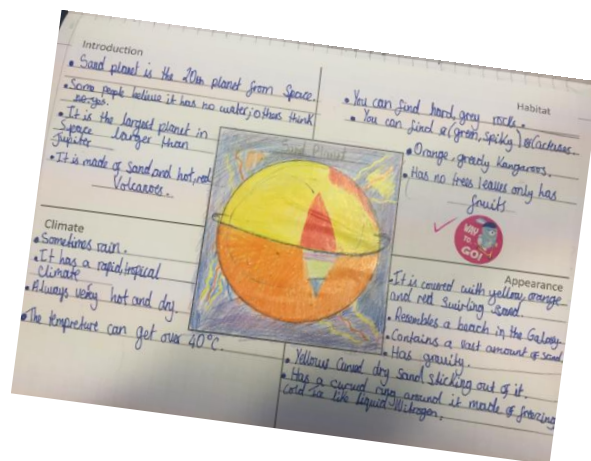 Introduction
• Sand planet is the 20th planet from Space.
• Some people believe it has no water, others think
• It is the largest planet in
Space larger than
Jupiter
• It is made of sand and hot, red
Volcanoes.
Habitat
• You can find hard, grey rocks.
• You can find a (green, spiky) Cactuses.
• Orange-greedy Kangaroos.
• Has no trees leaves only has
fruits
Sand Planet
WAY
TO
GO!
Climate
• Sometimes rain.
• It has a rapid, tropical
Climate
• Always very hot and dry.
• The tempreture can get over 40°C.
Appearance
• It is covered with yellow, orange
and red swirling sand.
• Resembles a beach in the Galaxy.
• Contains a vast amount of sand.
• Has gravity.
• Yellow curved dry sand sticking out of it.
• Has a curved ring around it made of freezing
cold ice like liquid Nitrogen.